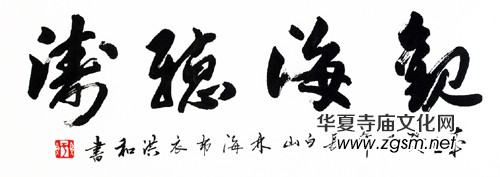 觀海聽濤
白山林海布衣洪和書
华夏寺庙文化网
www.zgsm.net